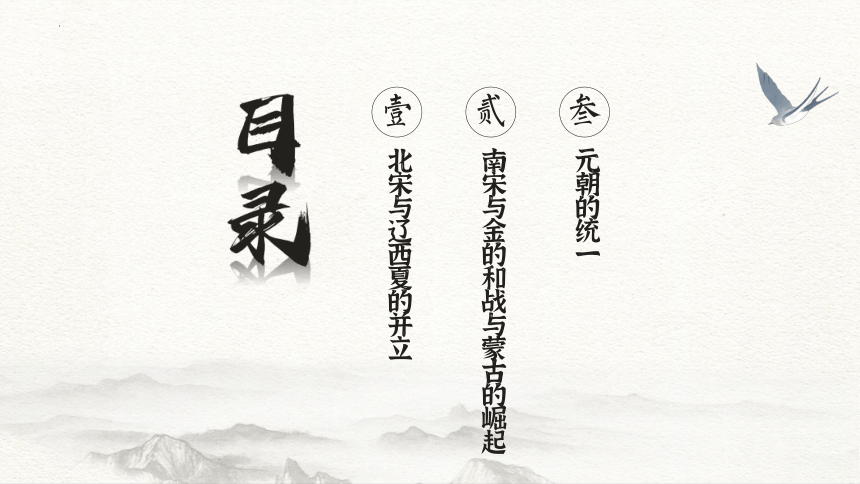 目录
壹
北宋与辽西夏的并立
贰
南宋与金的和战与蒙古的崛起
叁
元朝的统一